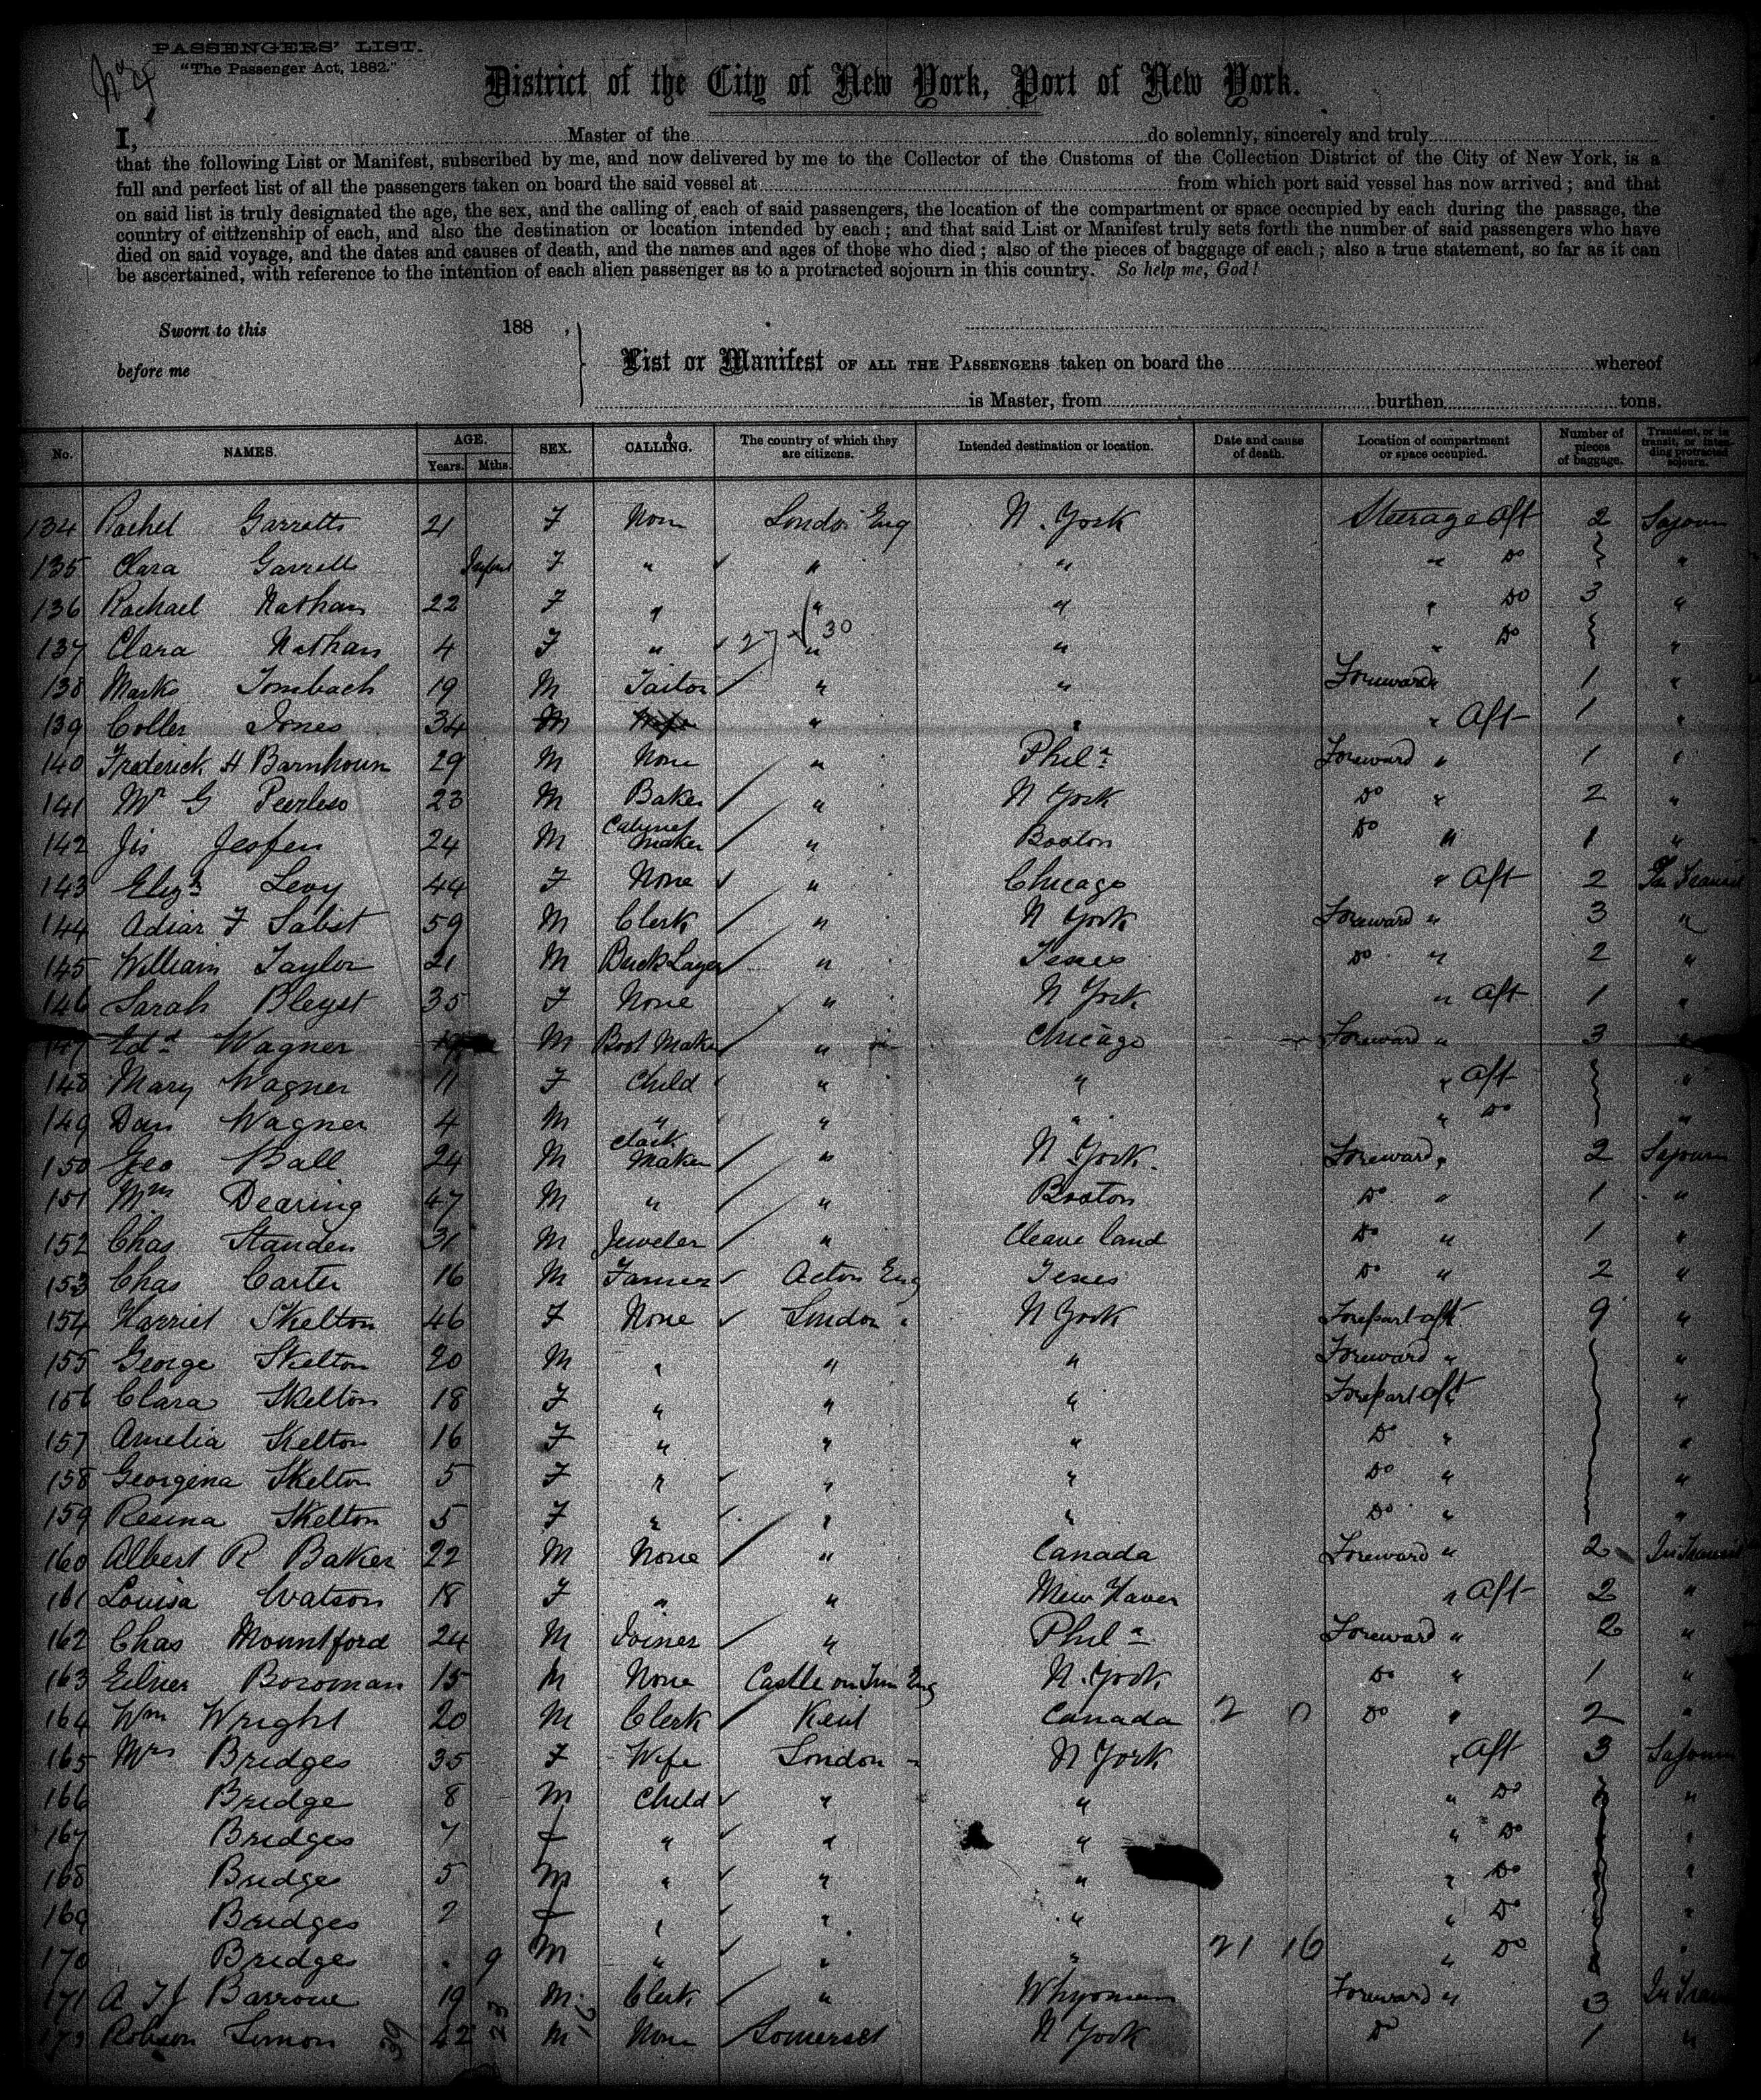 PASSENGERS' LIST.
"The Passenger Act, 1882."
District of the City of New York, Port of New York.
I, Master of the do solemnly, sincerely and truly
that the following List or Manifest, subscribed by me, and now delivered by me to the Collector of the Customs of the Collection District of the City of New York, is a
full and perfect list of all the passengers taken on board the said vessel at from which port said vessel has now arrived; and that
on said list is truly designated the age, the sex, and the calling of each of said passengers, the location of the compartment or space occupied by each during the passage, the
country of citizenship of each, and also the destination or location intended by each; and that said List or Manifest truly sets forth the number of said passengers who have
died on said voyage, and the dates and causes of death, and the names and ages of those who died; also of the pieces of baggage of each; also a true statement, so far as it can
be ascertained, with reference to the intention of each alien passenger as to a protracted sojourn in this country. So help me, God!
Sworn to this 188 ,
before me
List or Manifest OF ALL THE PASSENGERS taken on board the whereof
is Master, from burthen tons.
No. NAMES. AGE. Years. Mths. SEX. CALLING. The country of which they are citizens. Intended destination or location. Date and cause of death. Location of compartment or space occupied. Number of pieces of baggage. Transient, or in transit, or intending protracted sojourn.
134 Rachel Garratts 21 F Non London Eng N. York Steerage Aft 2 Sojourn
135 Clara Garretts Infant F " " " " Do "
136 Rachael Nathan 22 F " " " " Do 3 "
137 Clara Nathan 4 F " 27 30 " " " Do "
138 Marks Tombach 19 M Tailor " " Foreward " 1 "
139 Coller Jones 34 M " " " Aft 1 "
140 Frederick H Barnhoun 29 M None " Phila Foreward " 1 "
141 Mr G Peerless 23 M Baker " N York Do " 2 "
142 Jis Jeofen 24 M Cabinet Maker " Boston Do " 1 "
143 Elizh Levy 44 F None " Chicago " Aft 2 In Transit
144 Adiar F Sabst 59 M Clerk " N York Foreward " 3 "
145 William Taylor 21 M Buck Layer " Texes Do " 2 "
146 Sarah Bleyst 35 F None " N York " Aft 1 "
147 Edd Wagner 19 M Boot Maker " Chicago Foreward " 3 "
148 Mary Wagner 11 F Child " " " Aft "
149 Dan Wagner 4 M " " " " Do "
150 Geo Ball 24 M Clock Maker " N York. Foreward " 2 Sojourn
151 Wm Dearing 47 M " " Boston Do " 1 "
152 Chas Standen 31 M Jeweler " Cleave land Do " 1 "
153 Chas Carter 16 M Farmer Acton Eng Texes Do " 2 "
154 Harriet Skelton 46 F None London " N York Forepart aft 9 "
155 George Skelton 20 M " " " Foreward " "
156 Clara Skelton 18 F " " " Forepart aft "
157 Amelia Skelton 16 F " " " Do " "
158 Georgina Skelton 5 F " " " Do " "
159 Resina Skelton 5 F " " " Do " "
160 Albert R Baker 22 M None " Canada Foreward " 2 In Transit
161 Louisa Watson 18 F " " New Haven " Aft 2 "
162 Chas Mountford 24 M Joiner " Phila Foreward " 2 "
163 Eilner Bozoman 15 M None Castle on Tine Eng N. York Do " 1 "
164 Wm Wright 20 M Clerk Kent Canada 2 Do " 2 "
165 Mrs Bridges 35 F Wife London " N York " Aft 3 Sojourn
166 Bridge 8 M Child " " " Do "
167 Bridges 7 F " " " " Do "
168 Bridges 5 M " " " " Do "
169 Bridges 2 F " " " " Do "
170 Bridges 9 M " " " 21 16 " Do "
171 A T J Barrone 19 M Clerk " Whyoman Foreward " 3 In Trans
173 Robson Simon 42 M None Somerset N York Do 1 "
39 23 16